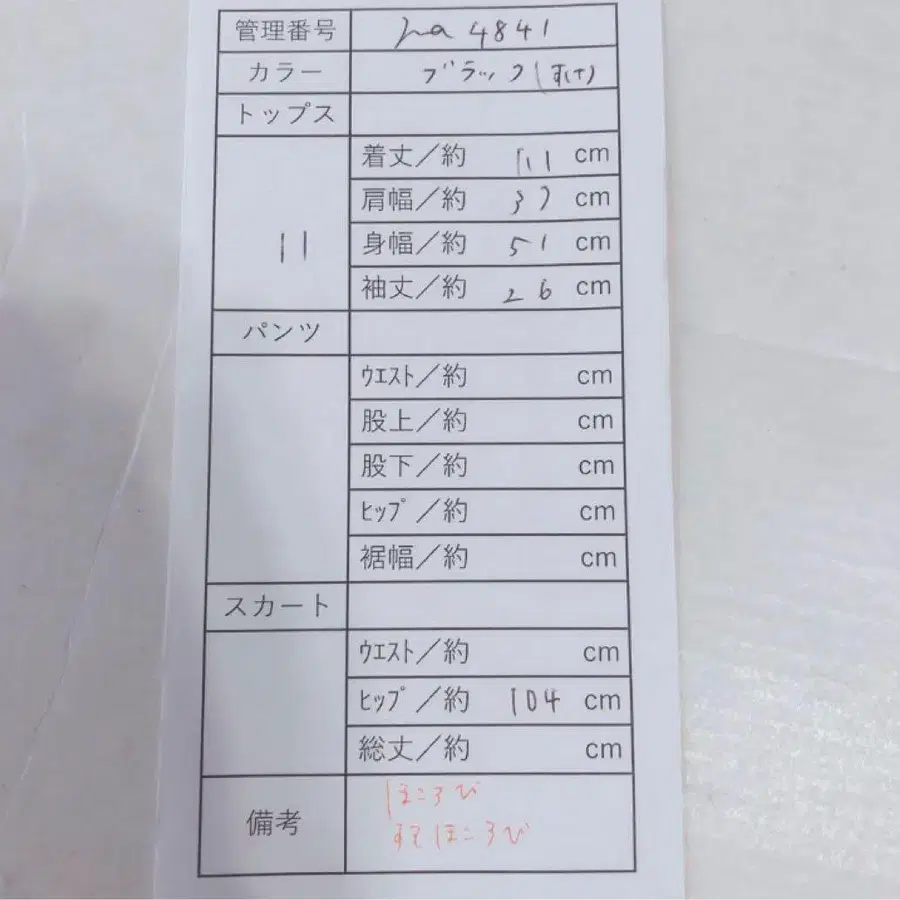 管理番号 na 4841
カラー ブラック(すけ)
トップス
着丈／約 111 cm
肩幅／約 37 cm
11 身幅／約 51 cm
袖丈／約 26 cm
パンツ
ウエスト／約 cm
股上／約 cm
股下／約 cm
ヒップ／約 cm
裾幅／約 cm
スカート
ウエスト／約 cm
ヒップ／約 104 cm
総丈／約 cm
備考 ほころび
すそほころび